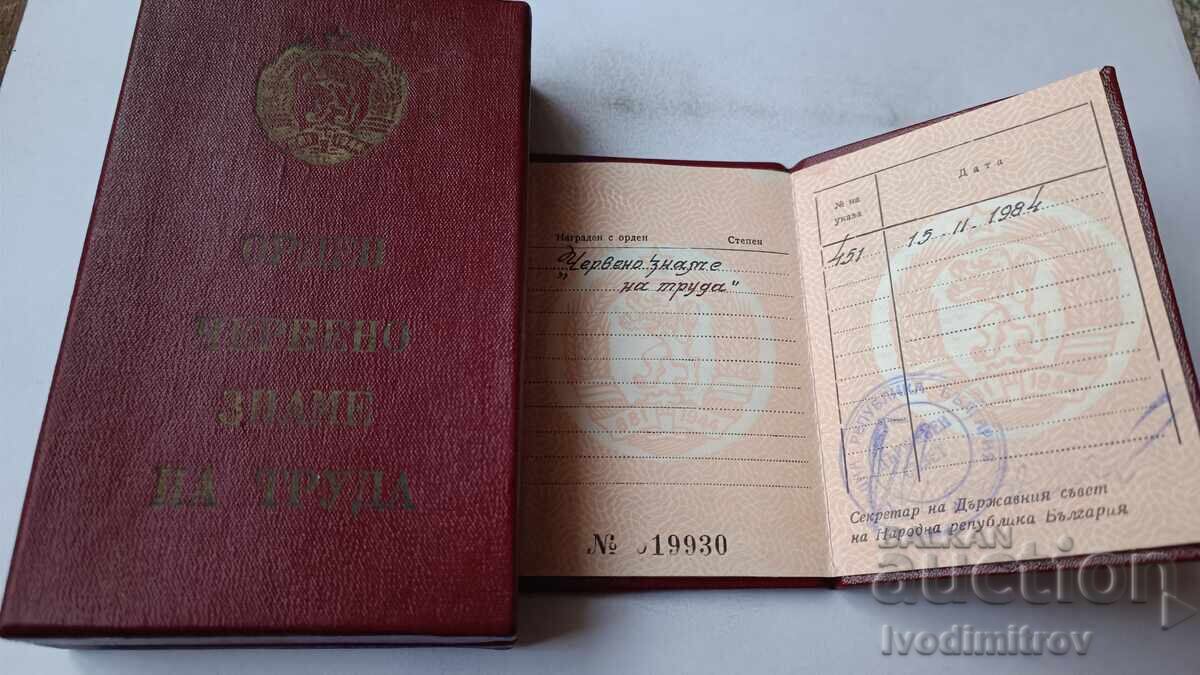 ОРДЕН
ЧЕРВЕНО
ЗНАМЕ
НА ТРУДА
Награден с орден Степен
„Червено знаме
на труда"
№ 019930
№ на
указа
Дата
451 15.11.1984
Секретар на Държавния съвет
на Народна република България
BALKAN
auction
Ivodimitrov